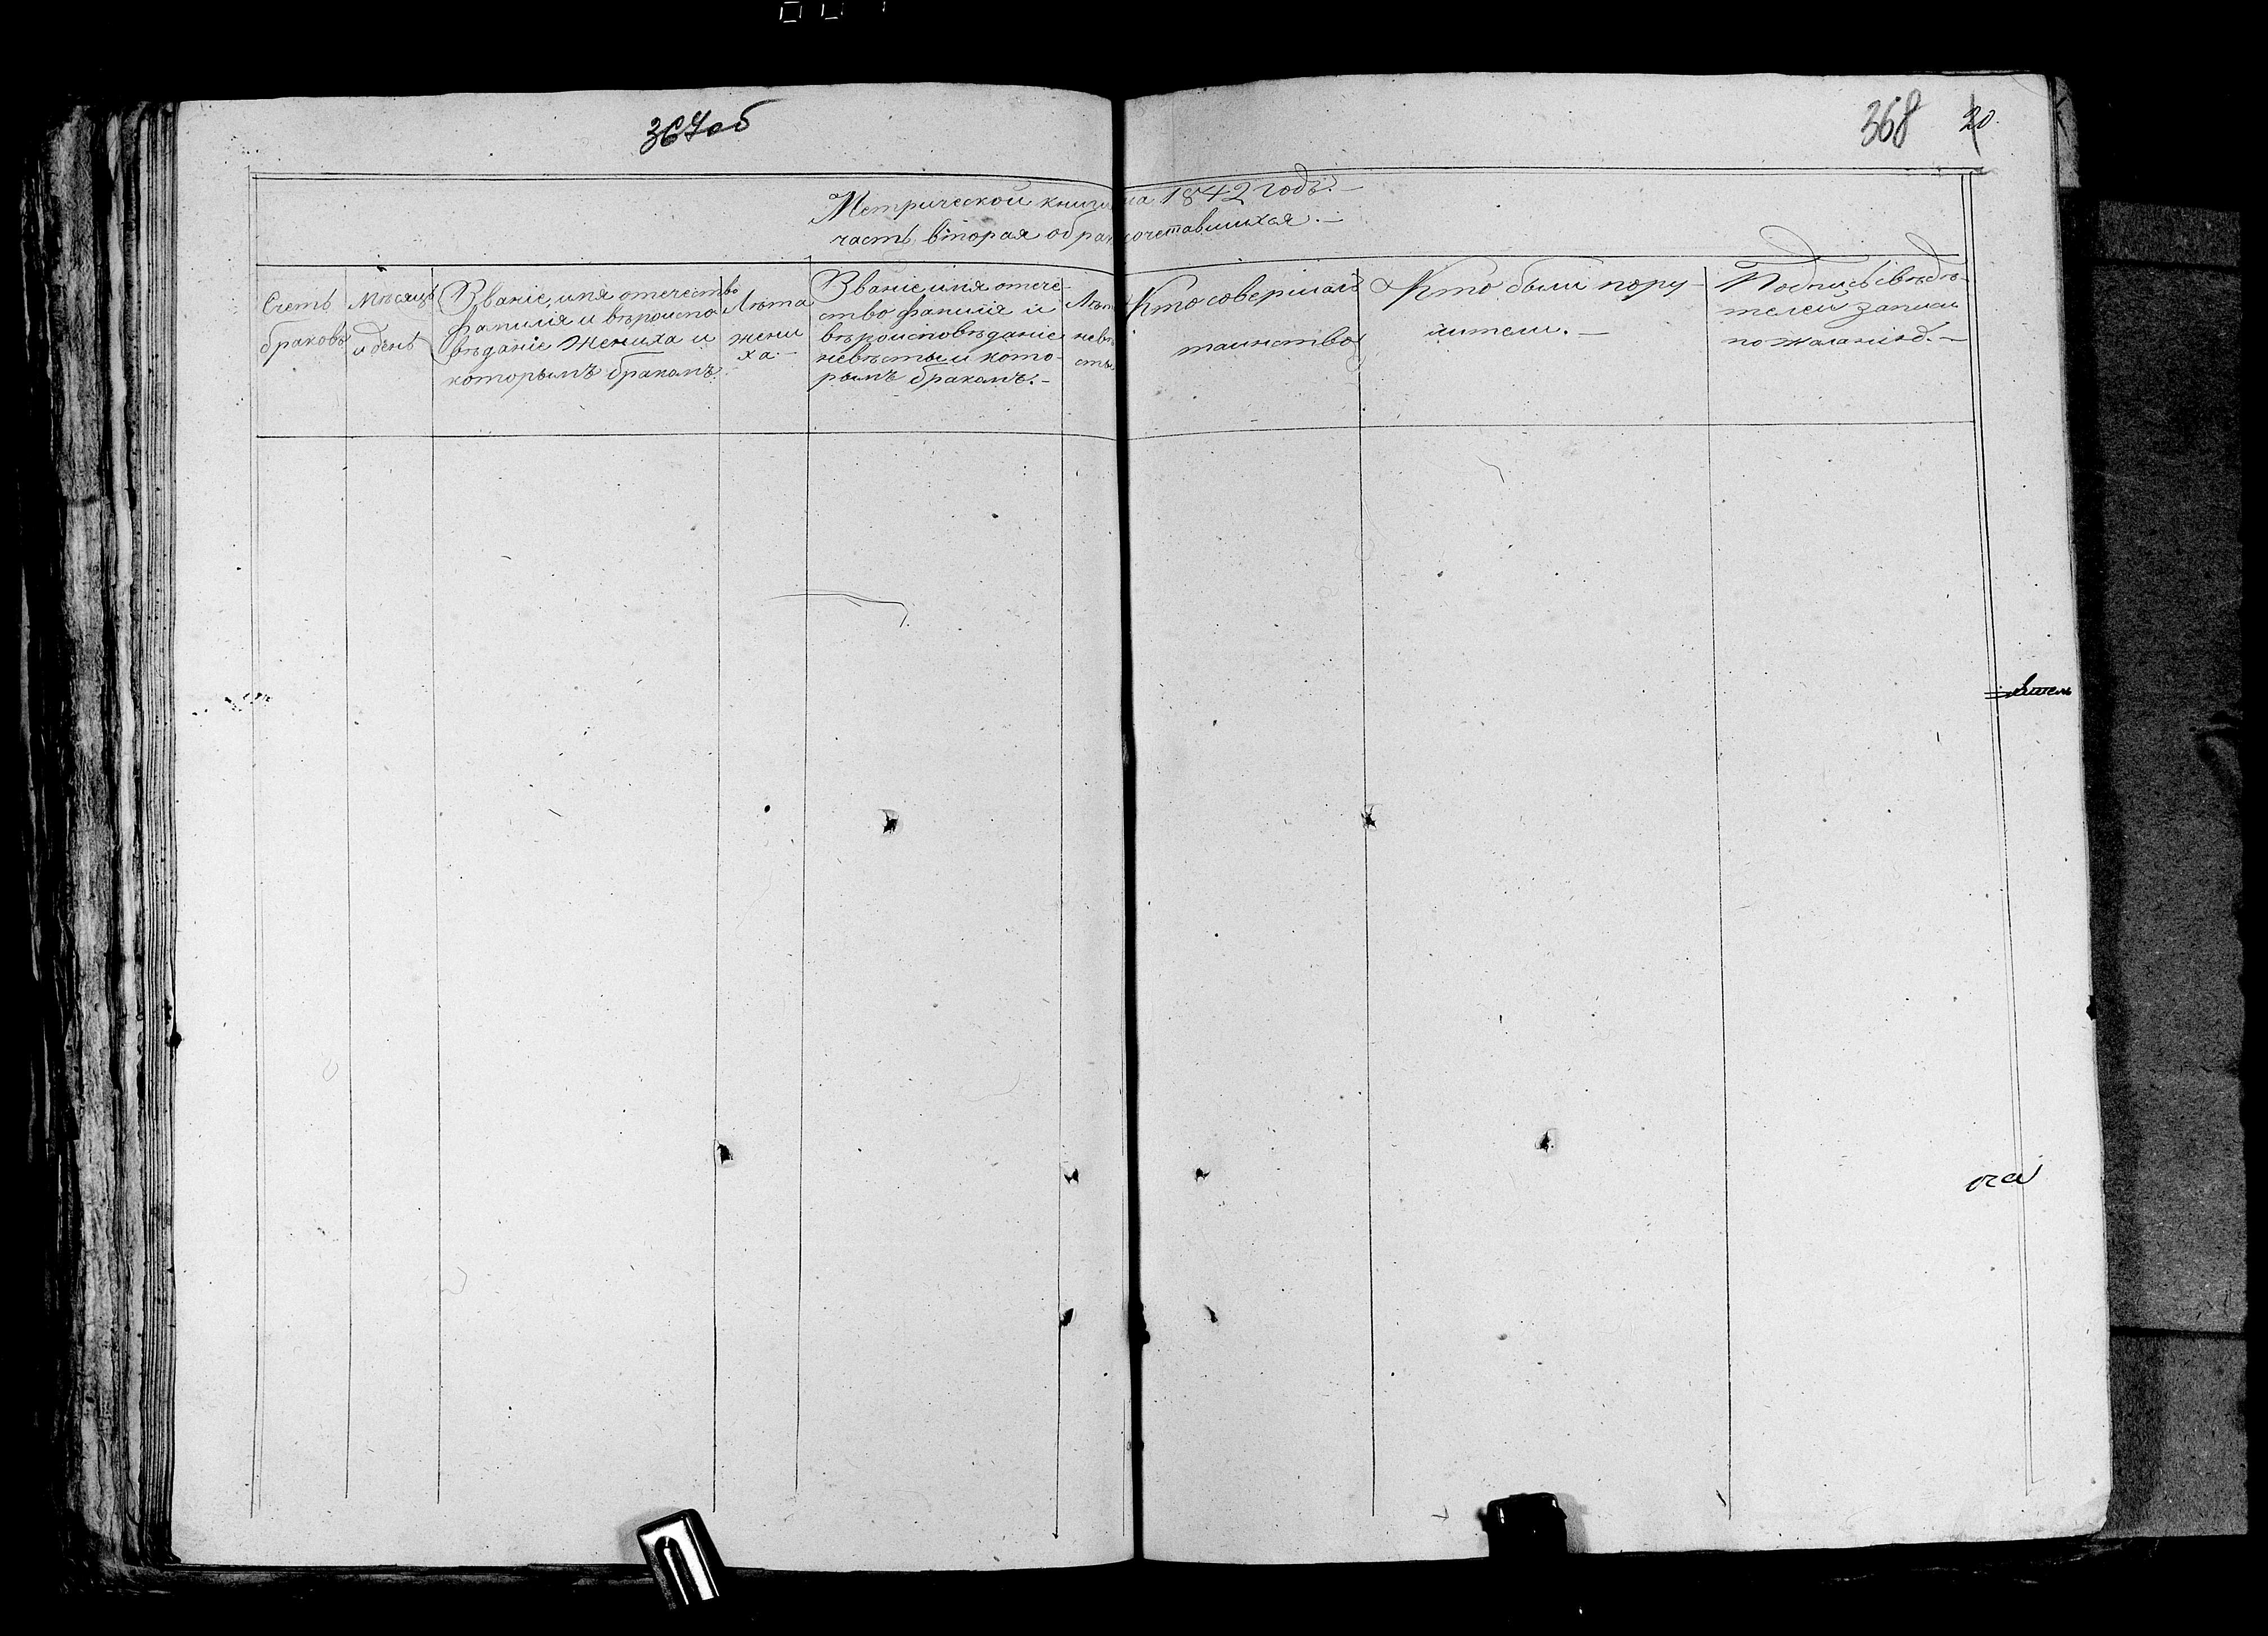 367об
368 20.
Метрической книги на 1842 годъ.—
часть вторая о бракосочетавшихся.—
Счетъ
браковъ
Мѣсяцъ
и день
Званіе, имя отечество
фамилія и вѣроиспо
вѣданіе Жениха и
которымъ бракомъ
Лѣта
жени
ха.—
Званіе имя отече-
ство фамилія и
вѣроисповѣданіе
невѣсты и кото-
рымъ бракомъ.—
Лѣта
невѣ
сты
Кто совершалъ
таинство
Кто были пору-
чители.—
Подпись свидѣ-
телей записи
по желанію.—